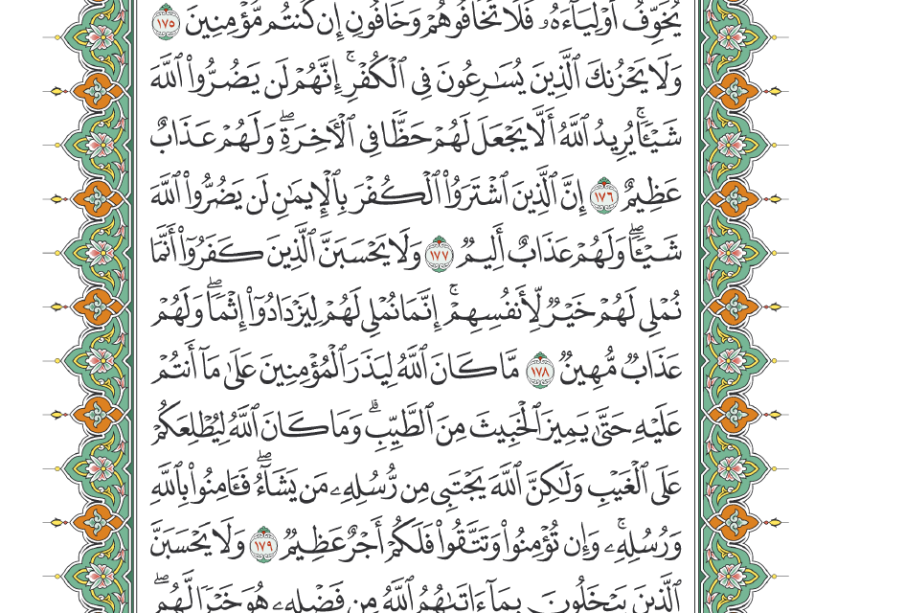 يُخَوِّفُ أَوْلِيَآءَهُۥ فَلَا تَخَافُوهُمْ وَخَافُونِ إِن كُنتُم مُّؤْمِنِينَ ١٧٥
وَلَا يَحْزُنكَ ٱلَّذِينَ يُسَٰرِعُونَ فِى ٱلْكُفْرِ ۚ إِنَّهُمْ لَن يَضُرُّوا۟ ٱللَّهَ
شَيْـًٔا ۗ يُرِيدُ ٱللَّهُ أَلَّا يَجْعَلَ لَهُمْ حَظًّا فِى ٱلْـَٔاخِرَةِ ۖ وَلَهُمْ عَذَابٌ
عَظِيمٌ ١٧٦ إِنَّ ٱلَّذِينَ ٱشْتَرَوُا۟ ٱلْكُفْرَ بِٱلْإِيمَٰنِ لَن يَضُرُّوا۟ ٱللَّهَ
شَيْـًٔا ۖ وَلَهُمْ عَذَابٌ أَلِيمٌ ١٧٧ وَلَا يَحْسَبَنَّ ٱلَّذِينَ كَفَرُوٓا۟ أَنَّمَا
نُمْلِى لَهُمْ خَيْرٌ لِّأَنفُسِهِمْ ۚ إِنَّمَا نُمْلِى لَهُمْ لِيَزْدَادُوٓا۟ إِثْمًا ۖ وَلَهُمْ
عَذَابٌ مُّهِينٌ ١٧٨ مَّا كَانَ ٱللَّهُ لِيَذَرَ ٱلْمُؤْمِنِينَ عَلَىٰ مَآ أَنتُمْ
عَلَيْهِ حَتَّىٰ يَمِيزَ ٱلْخَبِيثَ مِنَ ٱلطَّيِّبِ ۗ وَمَا كَانَ ٱللَّهُ لِيُطْلِعَكُمْ
عَلَى ٱلْغَيْبِ وَلَٰكِنَّ ٱللَّهَ يَجْتَبِى مِن رُّسُلِهِۦ مَن يَشَآءُ ۖ فَـَٔامِنُوا۟ بِٱللَّهِ
وَرُسُلِهِۦ ۚ وَإِن تُؤْمِنُوا۟ وَتَتَّقُوا۟ فَلَكُمْ أَجْرٌ عَظِيمٌ ١٧٩ وَلَا يَحْسَبَنَّ
ٱلَّذِينَ يَبْخَلُونَ بِمَآ ءَاتَىٰهُمُ ٱللَّهُ مِن فَضْلِهِۦ هُوَ خَيْرًا لَّهُم ۖ